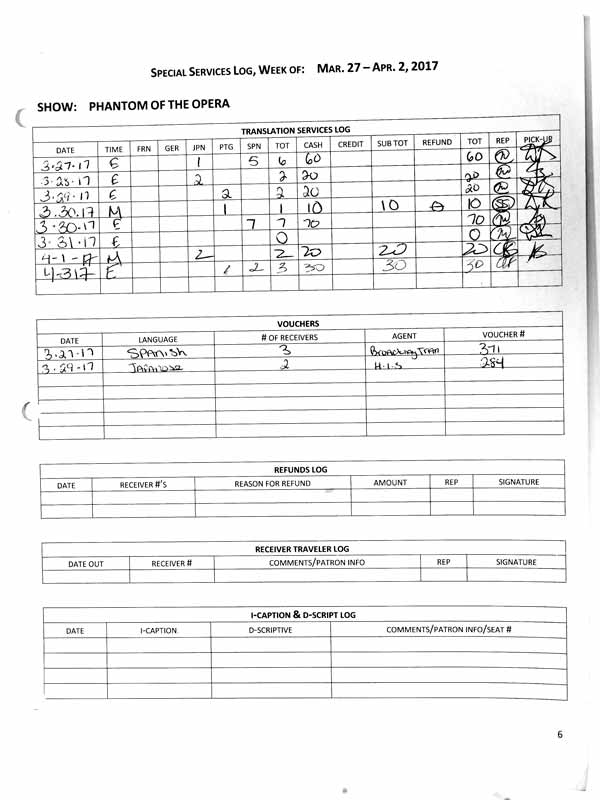 SPECIAL SERVICES LOG, WEEK OF: MAR. 27 – APR. 2, 2017
SHOW: PHANTOM OF THE OPERA
TRANSLATION SERVICES LOG
DATE TIME FRN GER JPN PTG SPN TOT CASH CREDIT SUB TOT REFUND TOT REP PICK-UP
3-27-17 E 1 5 6 60 60
3-28-17 E 2 2 20 20
3-29-17 E 2 2 20 20
3.30.17 M 1 1 10 10 10
3-30.17 E 7 7 70 70
3-31-17 E 0 0
4-1-17 M 2 2 20 20 20
4-317 E 1 2 3 30 30 30
VOUCHERS
DATE LANGUAGE # OF RECEIVERS AGENT VOUCHER #
3-27-17 SPANISH 3 371
3-29-17 2 H.I.S 284
REFUNDS LOG
DATE RECEIVER #'S REASON FOR REFUND AMOUNT REP SIGNATURE
RECEIVER TRAVELER LOG
DATE OUT RECEIVER # COMMENTS/PATRON INFO REP SIGNATURE
I-CAPTION & D-SCRIPT LOG
DATE I-CAPTION D-SCRIPTIVE COMMENTS/PATRON INFO/SEAT #
6